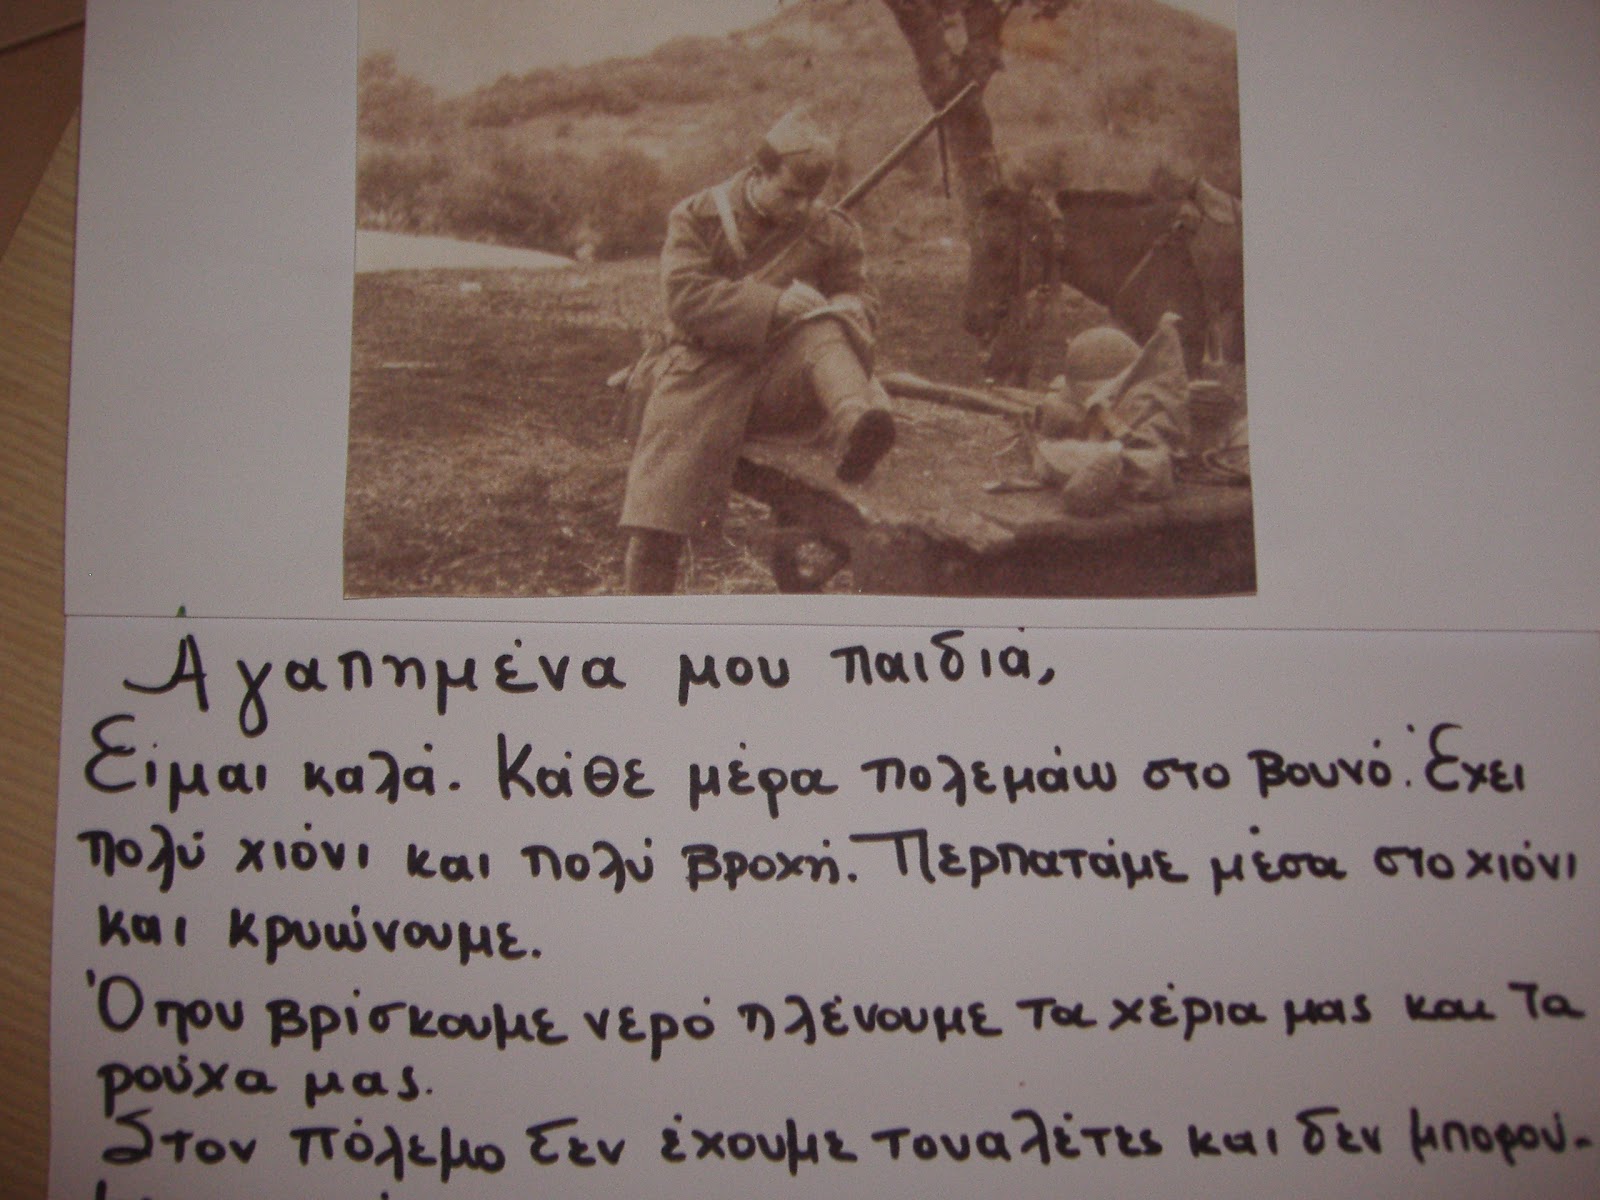 Αγαπημένα μου παιδιά,
Είμαι καλά. Κάθε μέρα πολεμάω στο βουνό. Έχει
πολύ χιόνι και πολύ βροχή. Περπατάμε μέσα στο χιόνι
και κρυώνουμε.
Όπου βρίσκουμε νερό πλένουμε τα χέρια μας και τα
ρούχα μας.
Στον πόλεμο δεν έχουμε τουαλέτες και δεν μπορού-